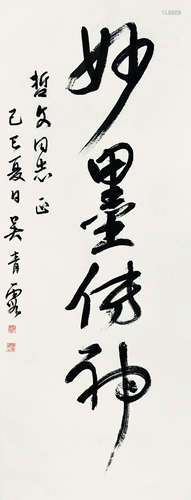 妙墨传神
哲文同志正
己巳夏日吴青霞